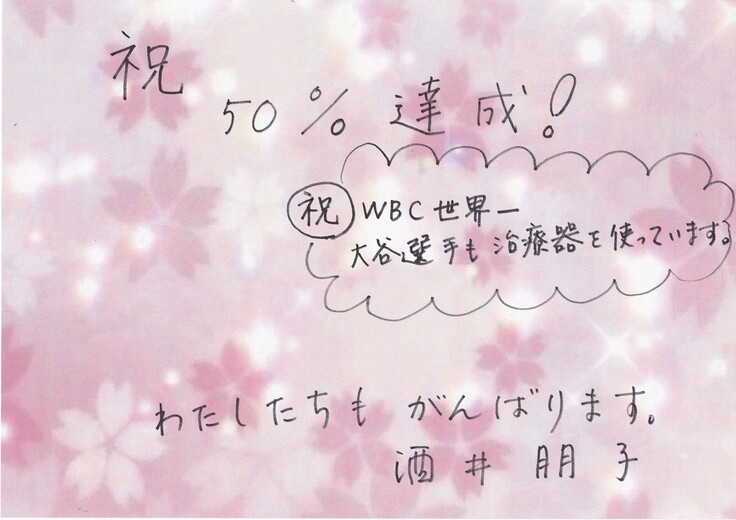 祝
50% 達成!
祝 WBC世界一
大谷選手も治療器を使っています。
わたしたちも がんばります。
酒井 朋子